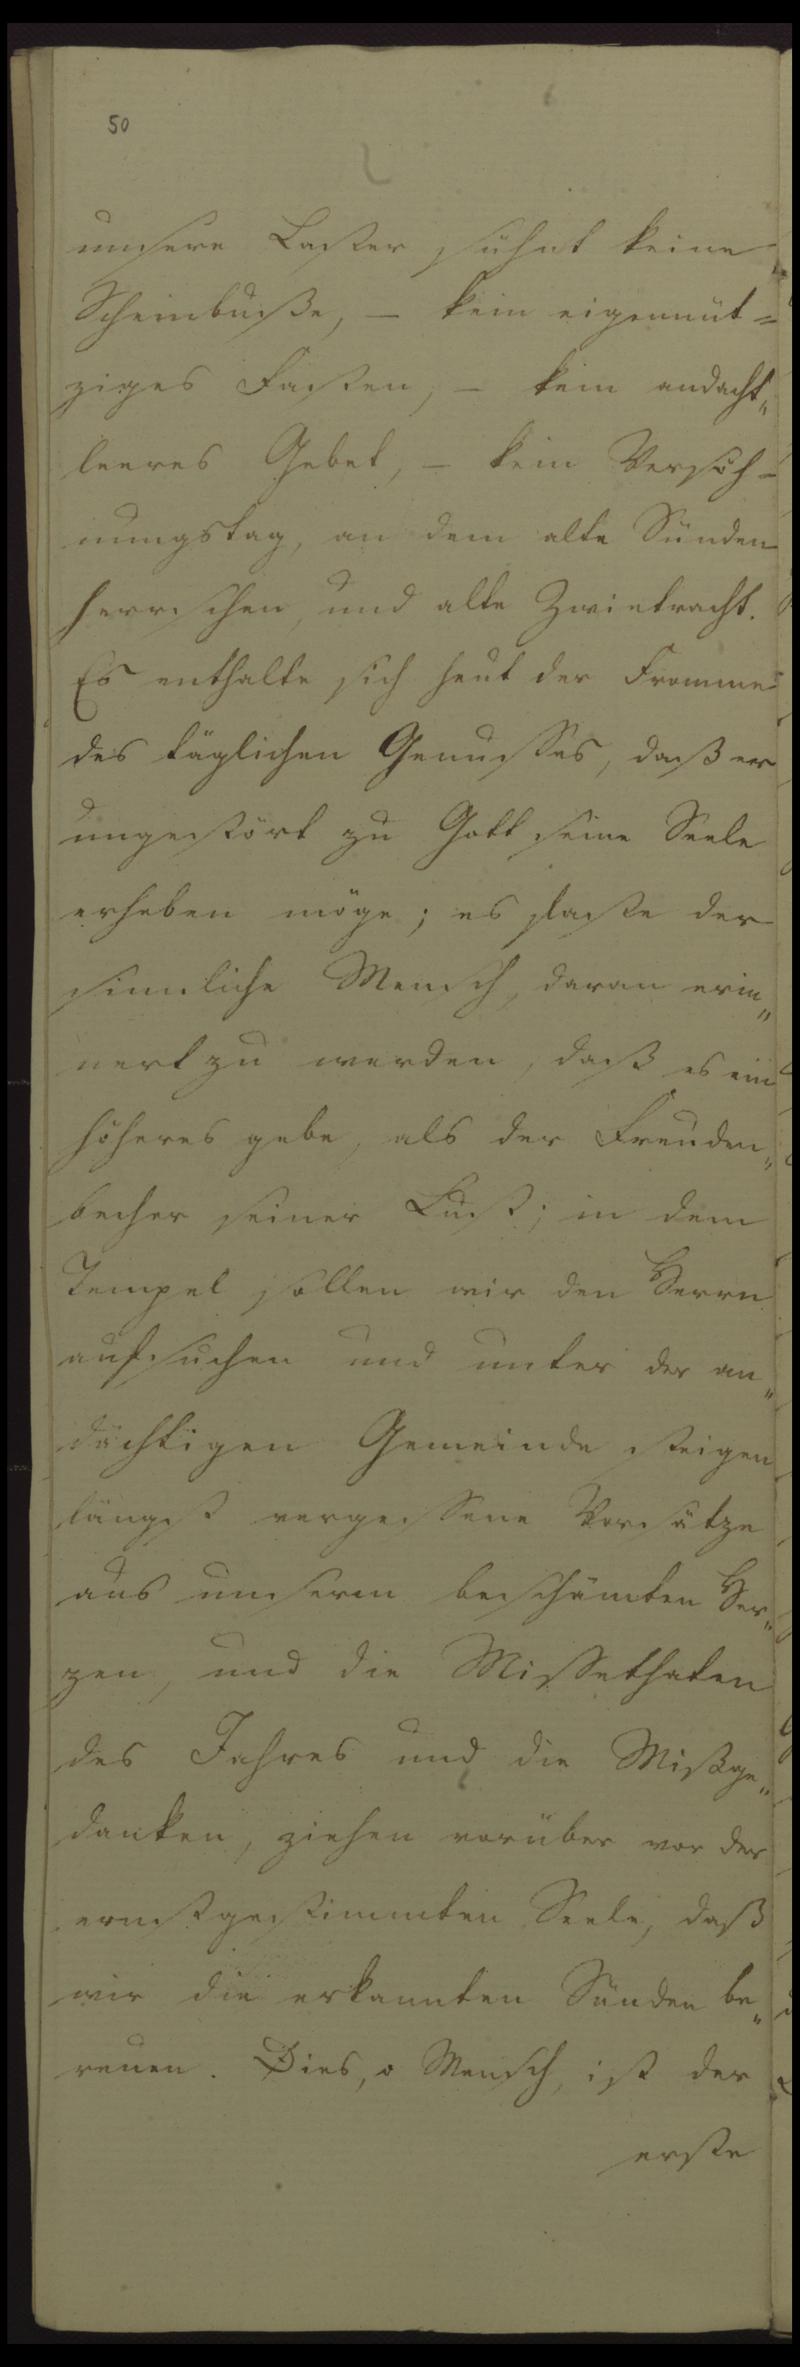 50
unsere Laster sühnt keine
Scheinbuße, – kein eigennüt=
ziges Fasten, – kein andacht„
leeres Gebet, – kein Versöh-
nungstag, an dem alte Sünden
herrschen, und alte Zwietracht.
Es enthalte sich heut der Fromme
des täglichen Genusses, daß er
ungestört zu Gott seine Seele
erheben möge; es faste der
sinnliche Mensch, daran erin„
nert zu werden, daß es ein
höheres gebe, als der Freuden„
becher seiner Lust; in dem
Tempel sollen wir den Herrn
aufsuchen und unter der an„
dächtigen Gemeinde steigen
längst vergessene Vorsätze
aus unserm beschämten Her„
zen, und die Missethaten
des Jahres und die Mißge„
danken, ziehen vorüber vor der
ernstgestimmten Seele, daß
wir die erkannten Sünden be„
reuen. Dies, o Mensch, ist der
erste